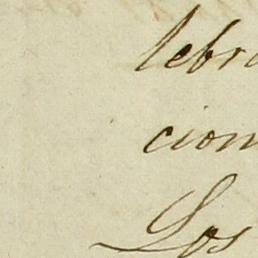 lebra
cion
Los